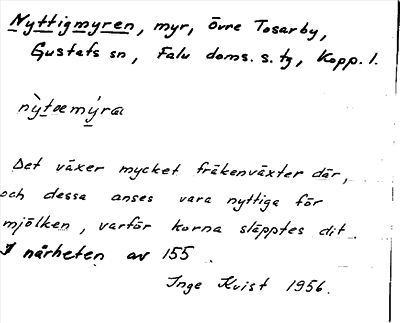 Nyttigmyren, myr, Övre Tosarby,
Gustafs sn, Falu doms. s. tg, Kopp. l.
Det växer mycket fräkenväxter där,
och dessa anses vara nyttiga för
mjölken, varför korna släpptes dit.
I närheten av 155.
Inge Kvist 1956.